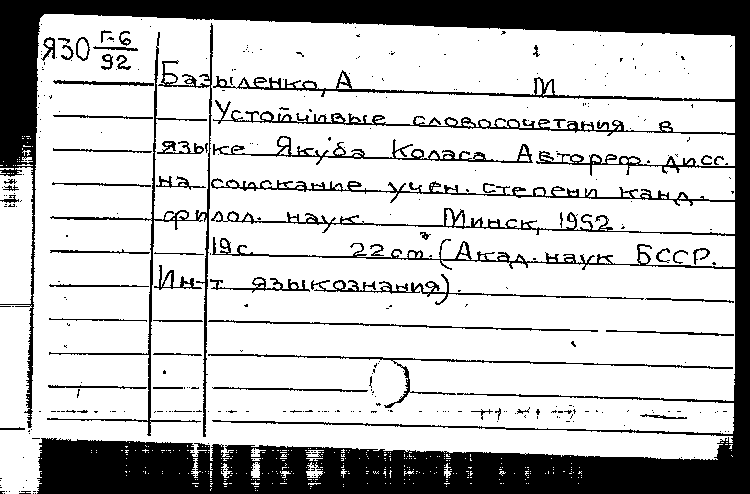 ЯЗО Г-6/92
Базыленко, А М
Устойчивые словосочетания в
языке Якуба Коласа. Автореф. дисс.
на соискание учен. степени канд.
филол. наук. Минск, 1952.
19с. 22см. (Акад. наук БССР.
Ин-т языкознания).